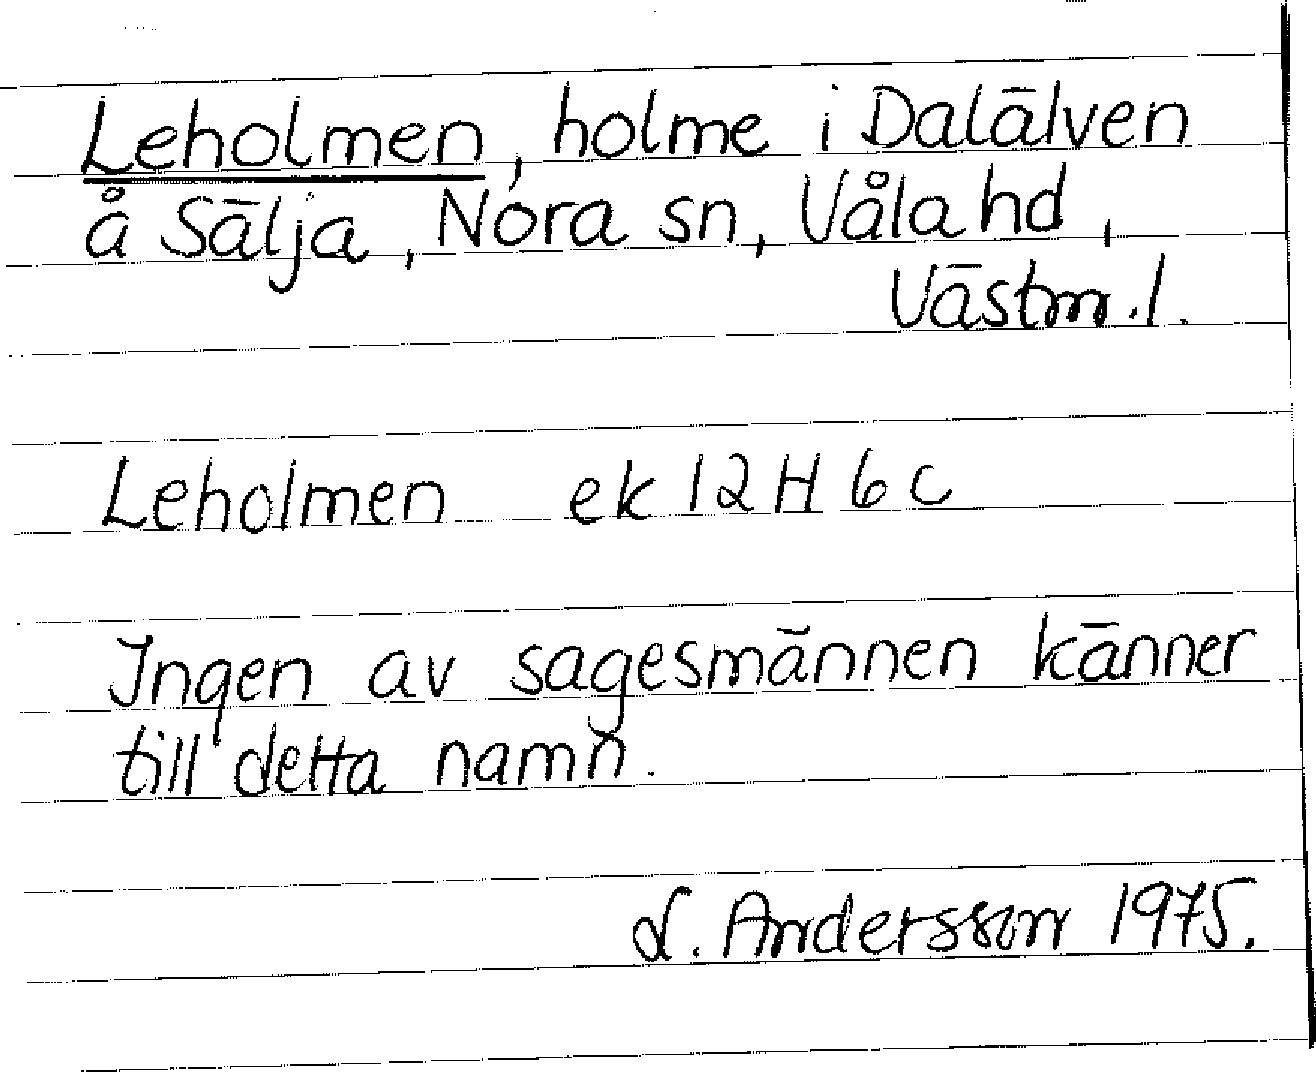 Leholmen, holme i Dalälven
å Sälja, Nora sn, Våla hd,
Västm. l.
Leholmen ek 12H 6c
Ingen av sagesmännen känner
till detta namn.
L. Andersson 1975.